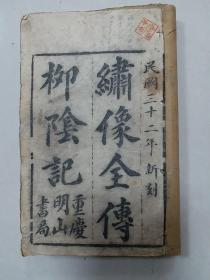 民國三十二年新刻
繡像全傳
柳陰記
重慶
明山
書局